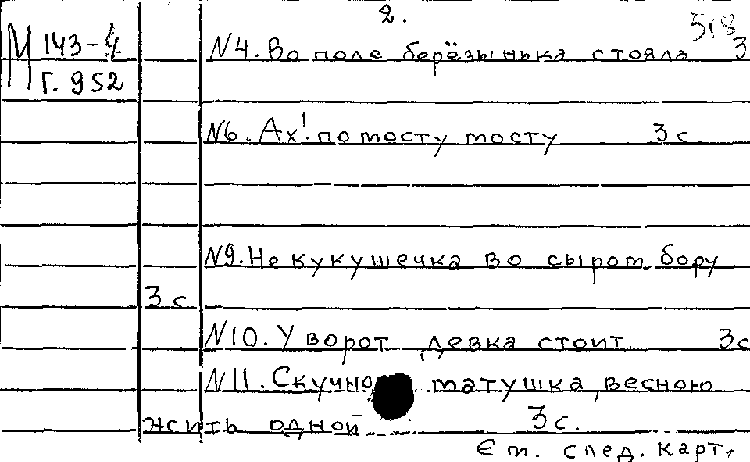 2.
518
М 143-4
Г. 952
N4. Во поле берёзынька стояла 3
N6. Ах! по мосту мосту 3с
N9. Не кукушечка во сыром бору
3с
N10. У ворот девка стоит 3с
N11. Скучно матушка весною
жить одной 3с.
См. след. карт.